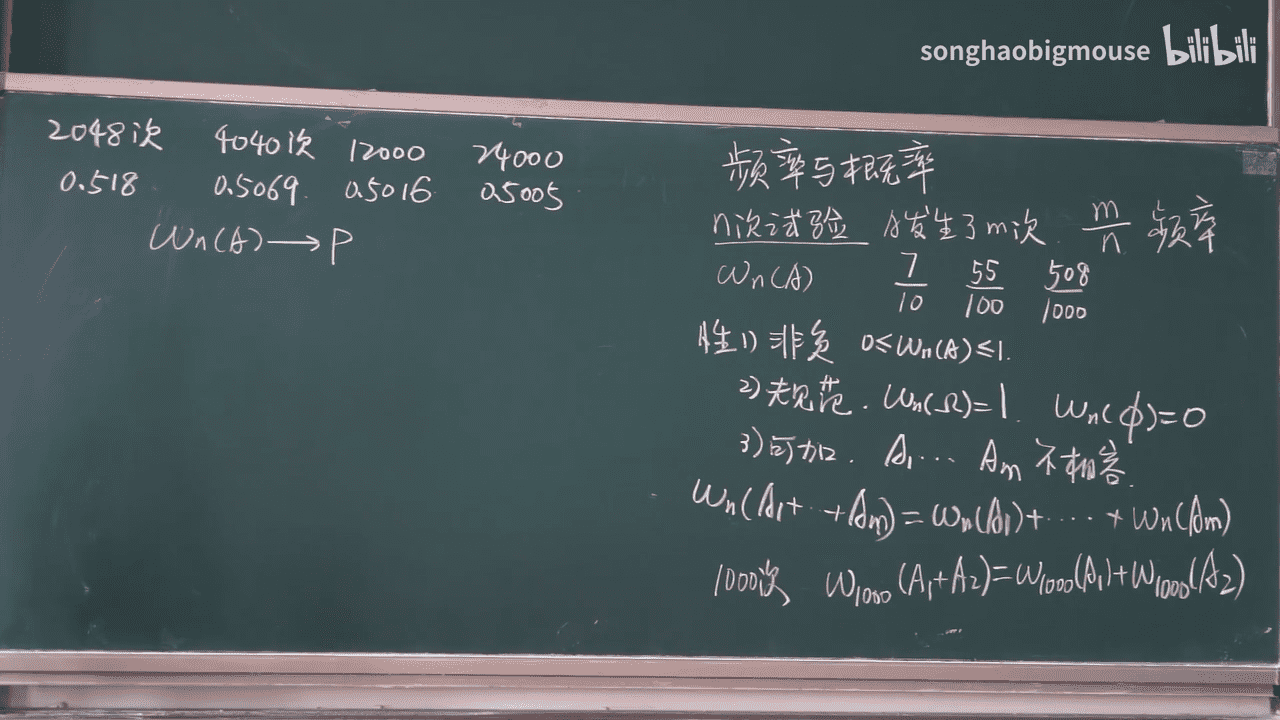 songhaobigmouse bilibili
2048次 4040次 12000 24000
0.518 0.5069. 0.5016 0.5005
ωn(A)→P
频率与概率
n次试验 A发生了m次. m/n 频率
ωn(A) 7/10 55/100 508/1000
性1) 非负 0≤ωn(A)≤1.
2) 规范. ωn(Ω)=1. ωn(φ)=0
3) 可加. A1… Am 不相容.
ωn(A1+…+Am)=ωn(A1)+……+ωn(Am)
1000次 ω1000(A1+A2)=ω1000(A1)+ω1000(A2)